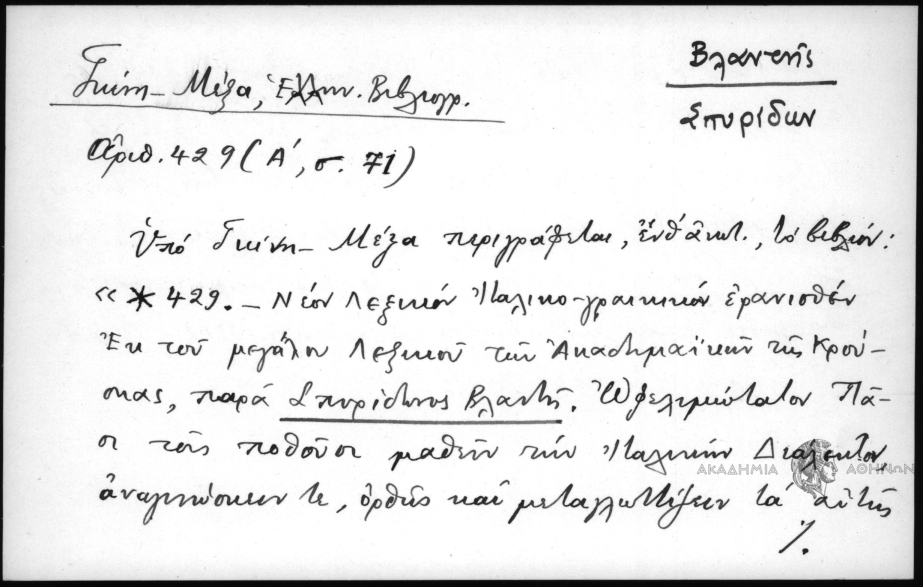 Βλαντής
Σπυρίδων
Γκίνη - Μέξα, Ἑλλην. Βιβλιογρ.
ἀριθ. 429 (Α΄, σ. 71)
Ὑπό Γκίνη - Μέξα περιγράφεται, ἔνθ' ἀνωτ., τό βιβλίον:
«*429. - Νέον Λεξικόν Ἰταλικο-γραικικόν ἐρανισθέν
Ἐκ τοῦ μεγάλου Λεξικοῦ τῶν Ἀκαδημαϊκῶν τῆς Κρού-
σκας, παρά Σπυρίδωνος Βλαντῆ. Ὠφελιμώτατον Πᾶ-
σι τοῖς ποθοῦσι μαθεῖν τήν Ἰταλικήν Διάλεκτον,
ἀναγινώσκειν τε, ὀρθῶς καί μεταγλωττίζειν τά αὐτῆς
./.
ΑΚΑΔΗΜΙΑ ΑΘΗΝΩΝ